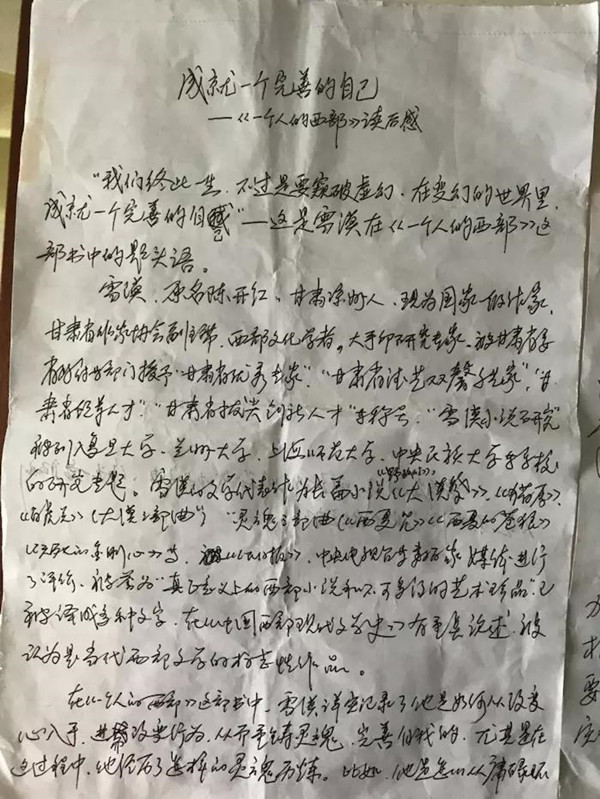 成就一个完善的自己
——《一个人的西部》读后感
“我们终此一生，不过是要窥破虚幻，在变幻的世界里，
成就一个完善的自己”——这是雪漠在《一个人的西部》这
部书中的题头语。
雪漠，原名陈开红，甘肃凉州人，现为国家一级作家，
甘肃省作家协会副主席，西部文化学者，大手印研究专家，被甘肃省委
省政府等部门授予“甘肃省优秀专家”、“甘肃省德艺双馨艺术家”、“甘
肃省领军人才”、“甘肃省拔尖创新人才”等称号，“雪漠小说研究”
被列入复旦大学、兰州大学、上海师范大学、中央民族大学等学校
的研究专题。雪漠的文学代表作为长篇小说《大漠祭》、《猎原》、
《白虎关》（大漠三部曲） “灵魂三部曲《西夏咒》《西夏的苍狼》
《无死的金刚心》等，中央电视台等百家媒体进行
了评价，被誉为“真正意义上的西部小说和不可多得的艺术珍品”，已
被译成多种文字，在《中国西部现代文学史》有重点论述，被
认为是当代西部文学的标志性作品。
在《一个人的西部》这部书中，雪漠详实记录了他是如何从改变
心入手，进而改变行为，从而重铸灵魂，完善自我的，尤其是在
这过程中，他经历了怎样的灵魂历练。比如，他是怎么从庸碌环